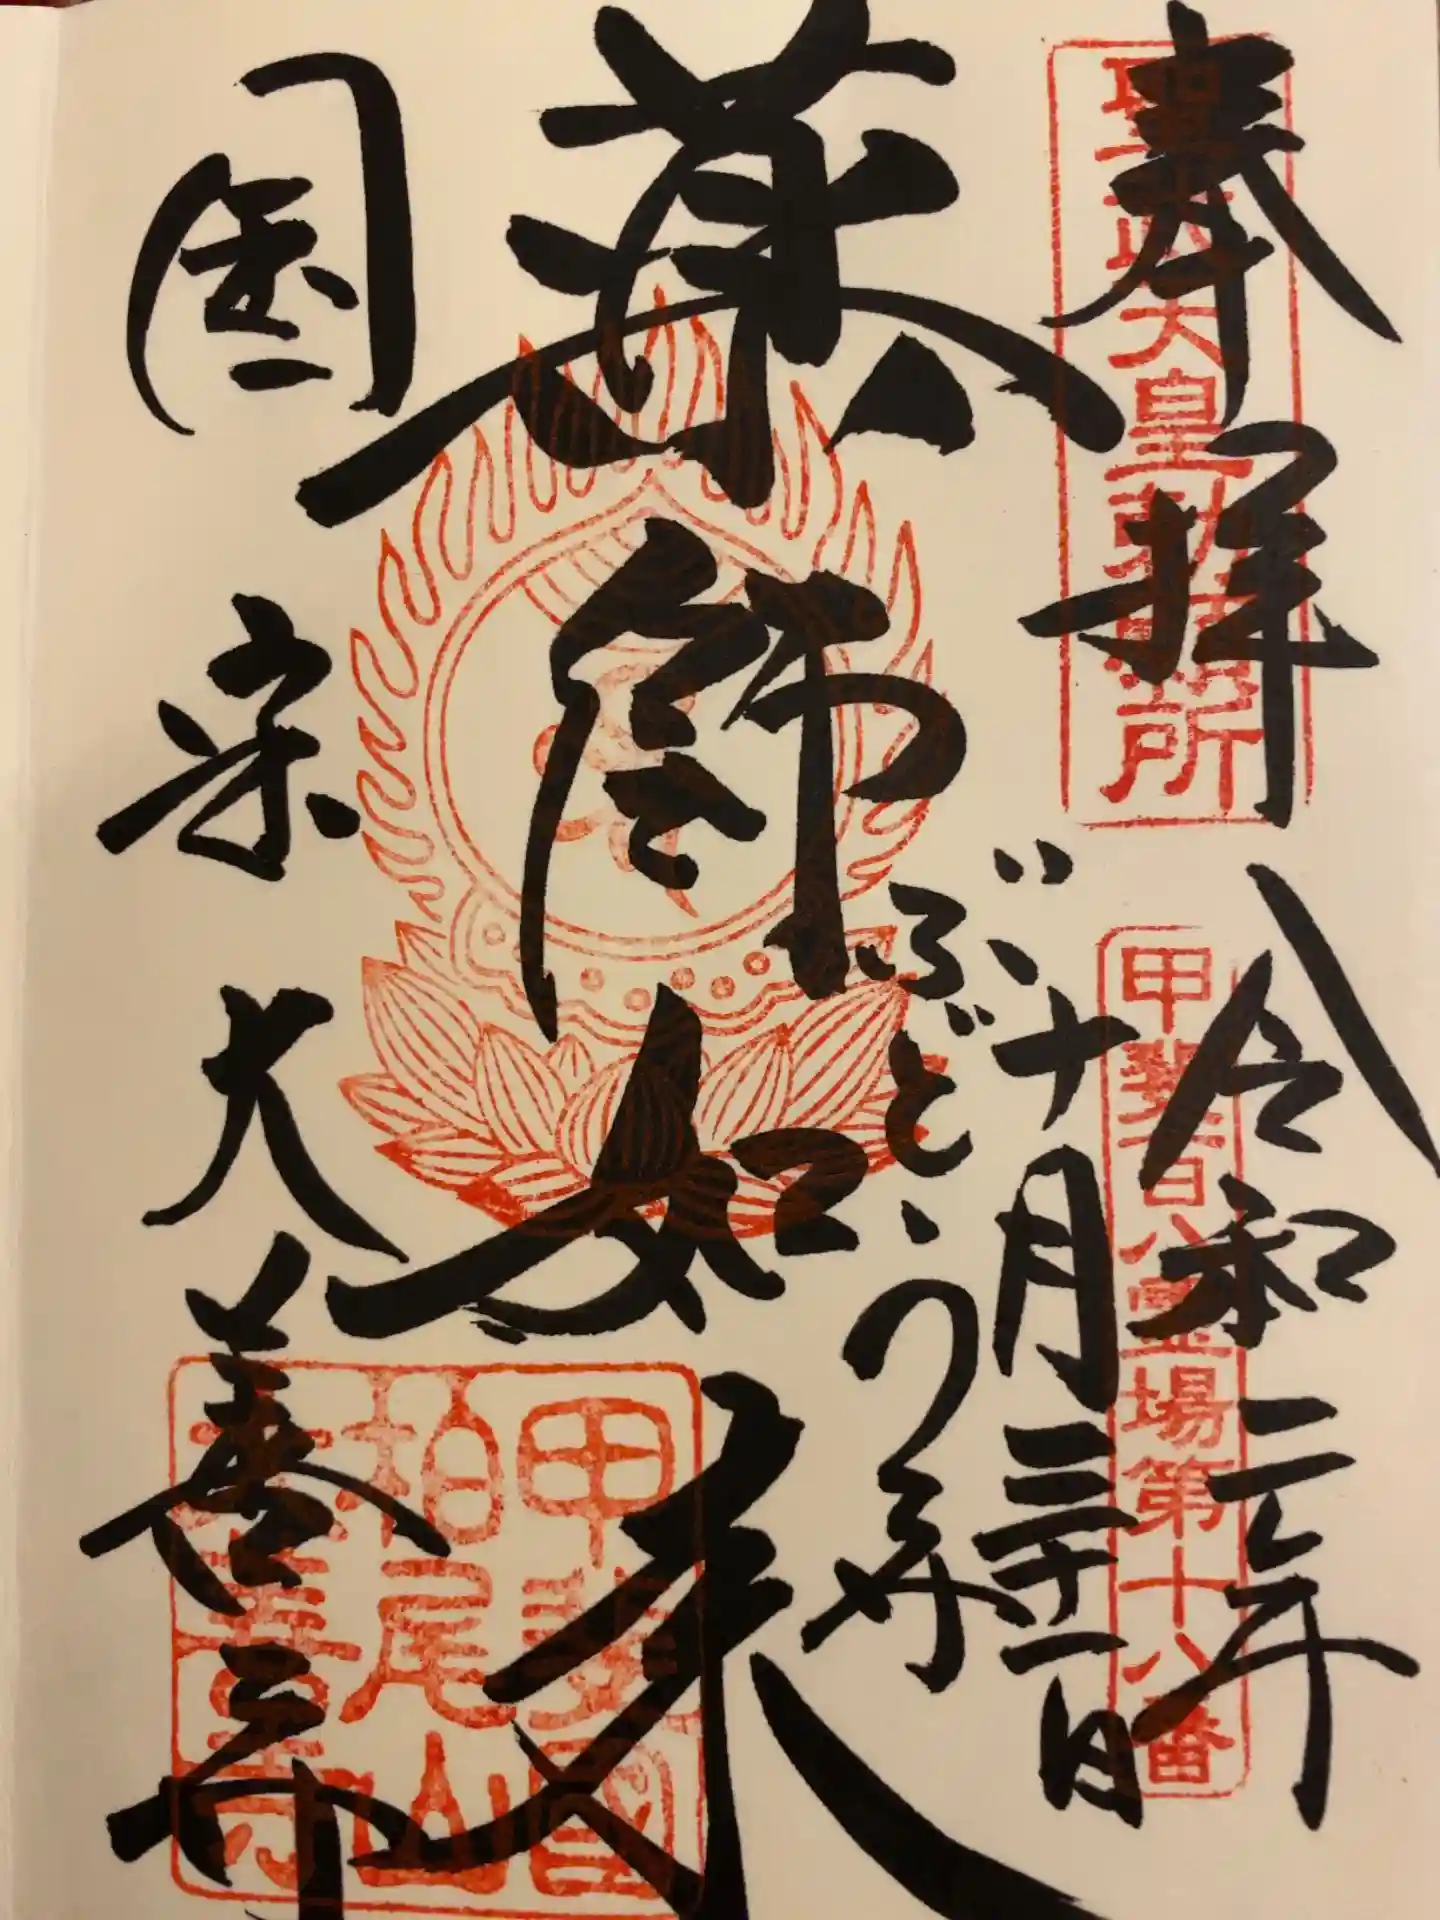 奉拝
聖武天皇勅願所
令和二年
甲斐百八霊場第十八番
十月三十一日
ぶどう
薬師如来
国宝
大善寺
甲斐國
柏尾山
大善寺